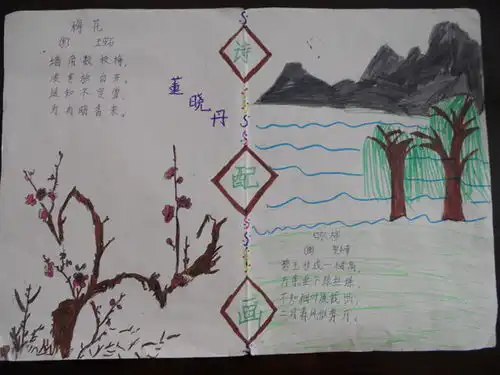 梅花
墙角数枝梅，
凌寒独自开。
遥知不是雪，
为有暗香来。
董晓丹
诗
配
画
碧玉妆成一树高，
万条垂下绿丝绦。
不知细叶谁裁出，
二月春风似剪刀。